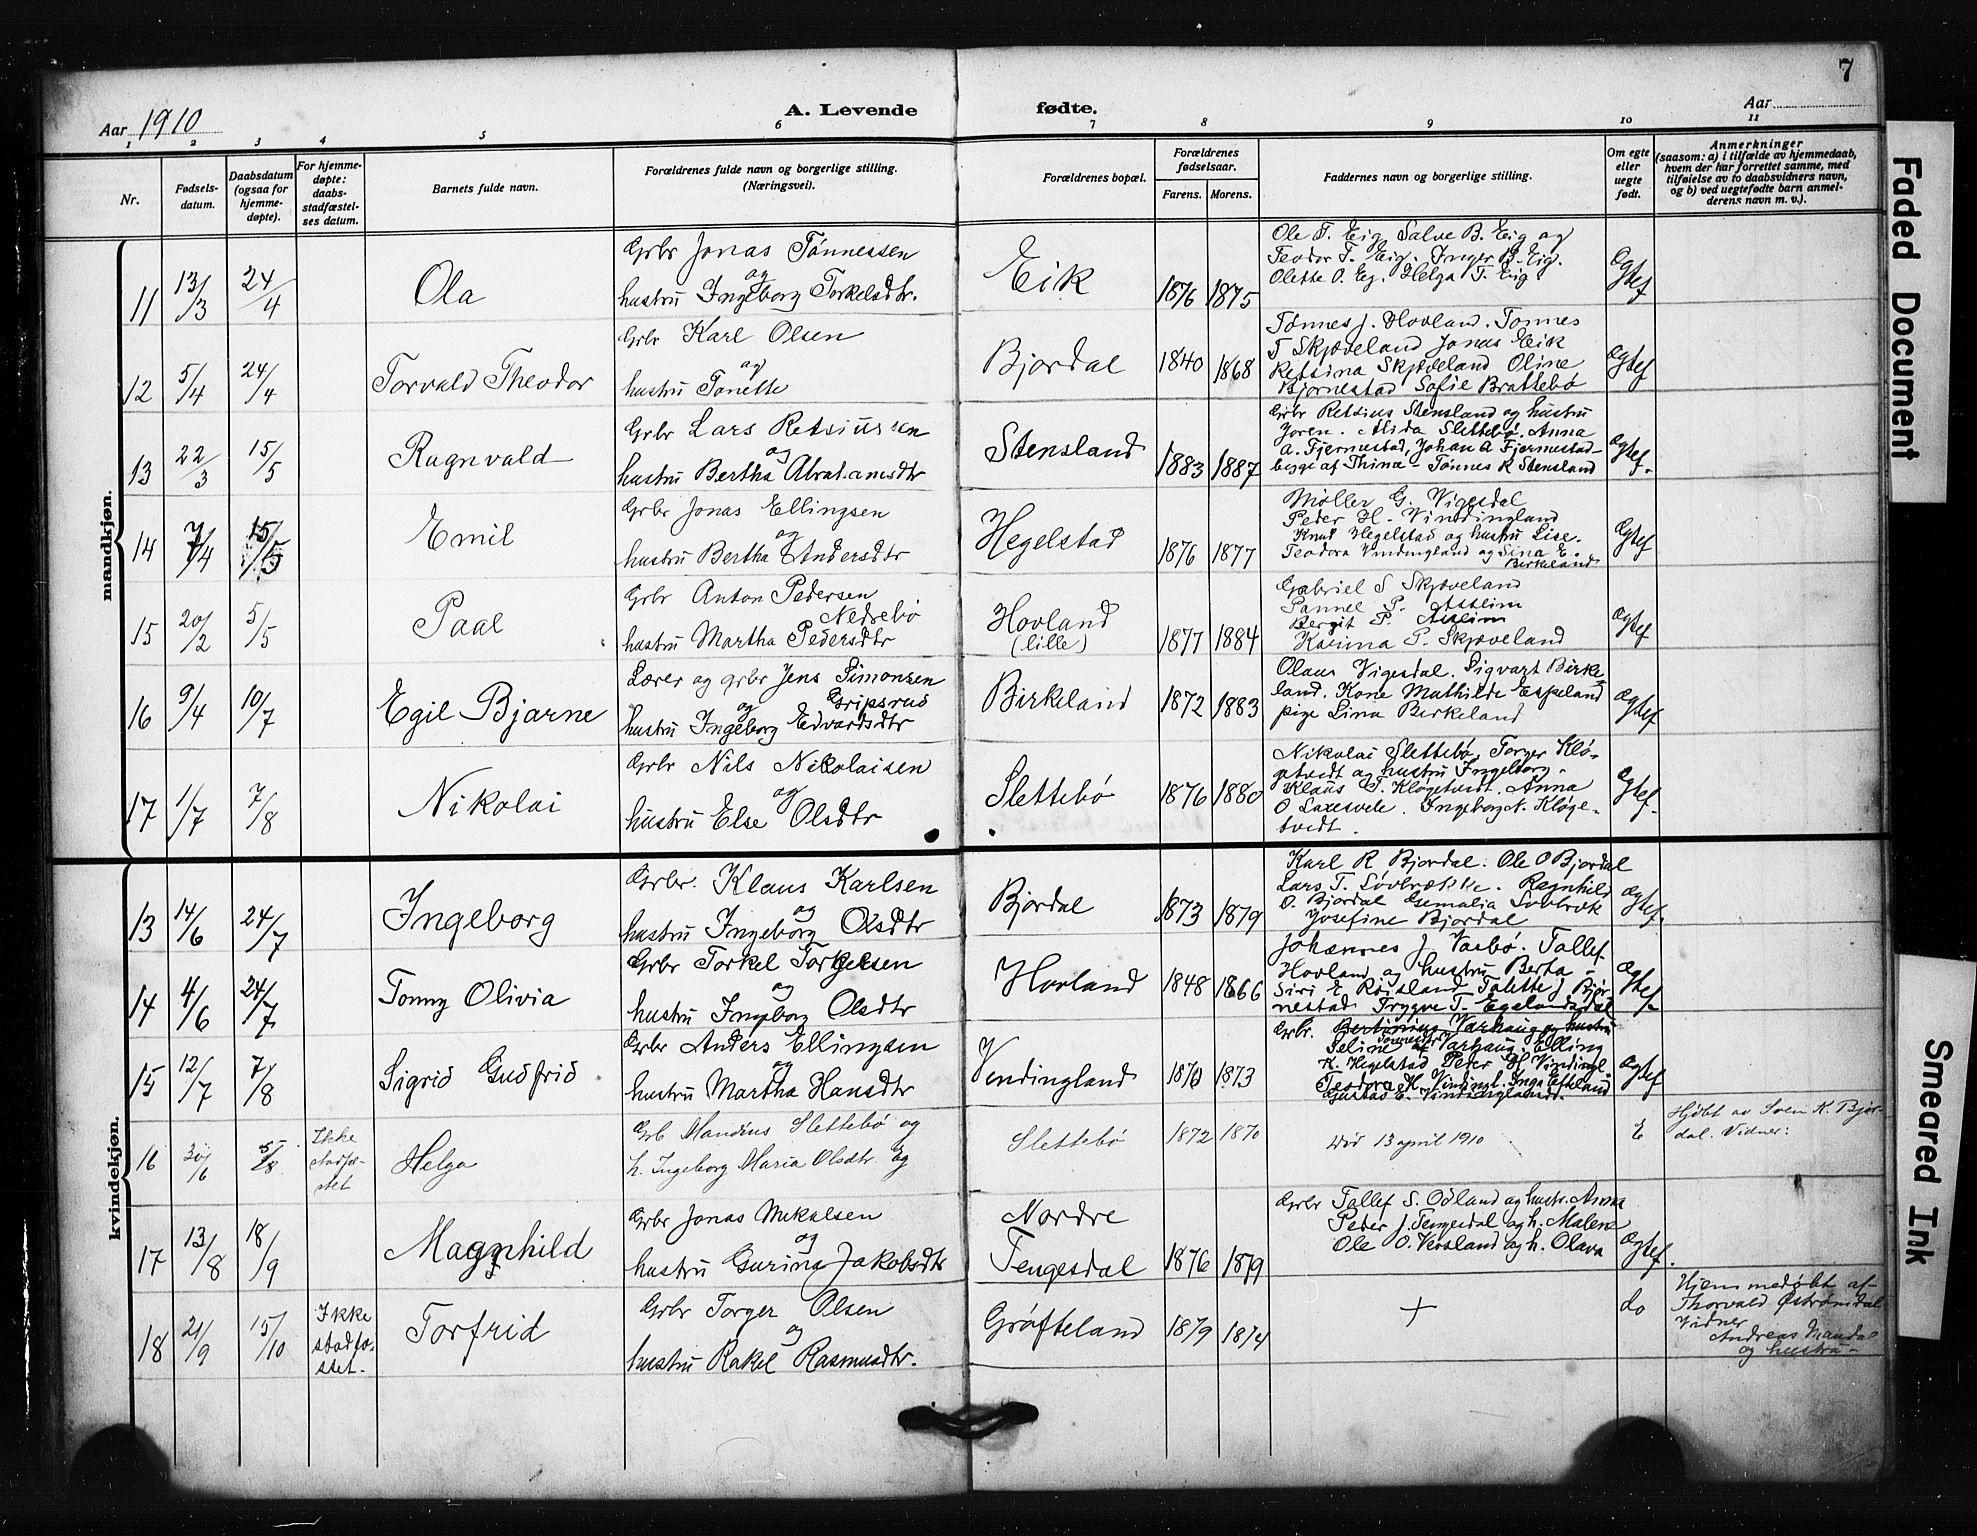 7
Aar 1910
A. Levende fødte.
Aar
1 2 3 4 5 6 7 8 9 10 11
Nr.
Fødsels-
datum.
Daabsdatum
(ogsaa for
hjemme-
døpte).
For hjemme-
døpte:
daabs-
stadfæstel-
ses datum.
Barnets fulde navn.
Forældrenes fulde navn og borgerlige stilling.
(Næringsvei).
Forældrenes bopæl.
Forældrenes
fødselsaar.
Farens. Morens.
Faddernes navn og borgerlige stilling.
Om egte
eller
uegte
født.
Anmerkninger
(saasom: a) i tilfælde av hjemmedaab,
hvem der har forrettet samme, med
tilføielse av to daabsvidners navn,
og b) ved uegtefødte barn anmel-
derens navn m. v.).
mandkjøn.
11 13/3 24/4 Ola
Grbr Jonas Tønnessen
og
hustru Ingeborg Torkelsdtr.
Eik 1876 1875
Ole T. Eig, Salve B. Eig og
Teodor T. Eig. Inger B. Eig.
Olette O. Eg. Helga T. Eig
Ægtef
12 5/4 24/4 Torvald Theodor
Grbr Karl Olsen
og
hustru Tonette
Bjordal 1840 1868
Tønnes J. Hovland. Tonnes
T Skjæveland Jonas Eik
Retsina Skjæveland Oline
Bjornestad Sofie Brattebø
Ægtef
13 22/3 15/5 Ragnvald
Grbr Lars Retsiussen
og
hustru Bertha Abrahamsdtr
Stensland 1883 1887
Grbr Retsius Stensland og hustru
Joren. Alida Slettebø. Anna
A. Fjermestad, Johan A Fjermestad-
begge af Thime - Tønnes R Stensland
Ægtef.
14 7/4 15/5 Emil
Grbr Jonas Ellingsen
og
hustru Bertha Andersdtr
Hegelstad 1876 1877
Møller G. Vigesdal
Peder H. Vindingland
Knud Hegelstad og hustru Lise.
Teodora Vindingland og Sina E.
Birkeland
Ægtef
15 20/2 5/5 Paal
Grbr Anton Pedersen
Nedrebø
hustru Martha Pedersdtr
Hovland
(lille) 1877 1884
Gabriel S Skjæveland
P. Asleim
Bergit P. Asleim
Karina P. Skjæveland
Ægtef
16 9/4 10/7 Egil Bjarne
Lærer og grbr Jens Simonsen
Gripsrud
og
hustru Ingeborg Edvardsdtr
Birkeland 1872 1883
Olaus Vigesdal. Sigvart Birke-
land. Kone Mathilde Espeland
pige Lina Berkeland
Ægtef
17 1/7 7/8 Nikolai
Grbr Nils Nikolaisen
og
hustru Else Olsdtr
Slettebø 1876 1880
Nikolai Slettebø, Torger Klø-
getvedt og hustru Ingeborg.
Klaus T. Kløgetvedt. Anna
O Laxesvele. Ingeborg N. Kløge-
tvedt.
Ægtef.
kvindekjøn.
13 14/6 24/7 Ingeborg
Grbr. Klaus Karlsen
og
hustru Ingeborg Olsdtr
Bjordal 1873 1879
Karl R Bjordal. Ole O Bjordal
Lars T. Løvbrække. Ragnhild
O. Bjordal Løvbræk
Josefine Bjordal
Ægtef.
14 4/6 24/7 Tonny Olivia
Grbr Torkel Torkelsen
og
hustru Ingeborg Olsdtr
Hovland 1848 1866
Johannes J Vasbø. Tallef
Hovland og hustru Berta -
Siri E. Røisland Tolette J Bjør-
nestad Trygve T. Egelandsdal
Ægtef
15 12/7 7/8 Sigrid Gudfrid
Grbr Anders Ellingsen
og
hustru Martha Hansdtr
Vendingland 1870 1873
Grbr. Bertinius Varhaug og hustru
Seline Tønnesdtr Varhaug. Elling
K. Hegelstad Peder H. Vindingl.
Teodora H. Vindingl. Inga Efteland
Gustad E. Vindingland.
Ægtef
16 30/6 5/8
Ikke
stadfæ-
stet
Helga
Grb Mandius Slettebø og
h. Ingeborg Maria Olsdtr. Eg
Slettebø 1872 1870
død 13 april 1910
E
Hjdøbt av Sven K. Bjor-
dal. Vidner:
17 13/8 18/9 Magnhild
Grbr Jonas Mikalsen
og
hustru Gurina Jakobsdtr
Nordre
Tengesdal 1876 1879
Grbr Tallef S. Odland og hustr. Anna
Peder J. Tengesdal og h. Malene
Ole O. Versland og h. Olava
Ægtef.
18 21/9 15/10
Ikke
stadfæ-
stet.
Torfrid
Grbr Torger Olsen
og
hustru Rakel Rasmusdtr.
Grøfteland 1879 1874
+
do
Hjemmedøbt af
Thorvald Østrømdal
Vidner
Andreas Mandal
og hustru -
Faded Document
Smeared Ink